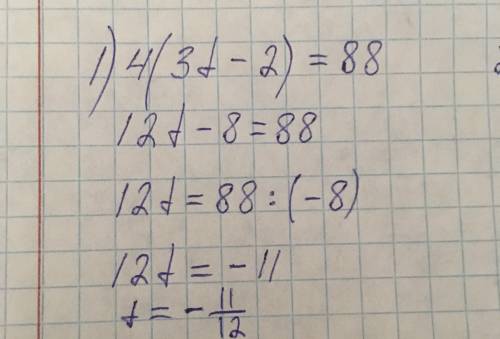 1) 4(3t - 2) = 88
12t - 8 = 88
12t = 88 : (-8)
12t = -11
t = - 11/12